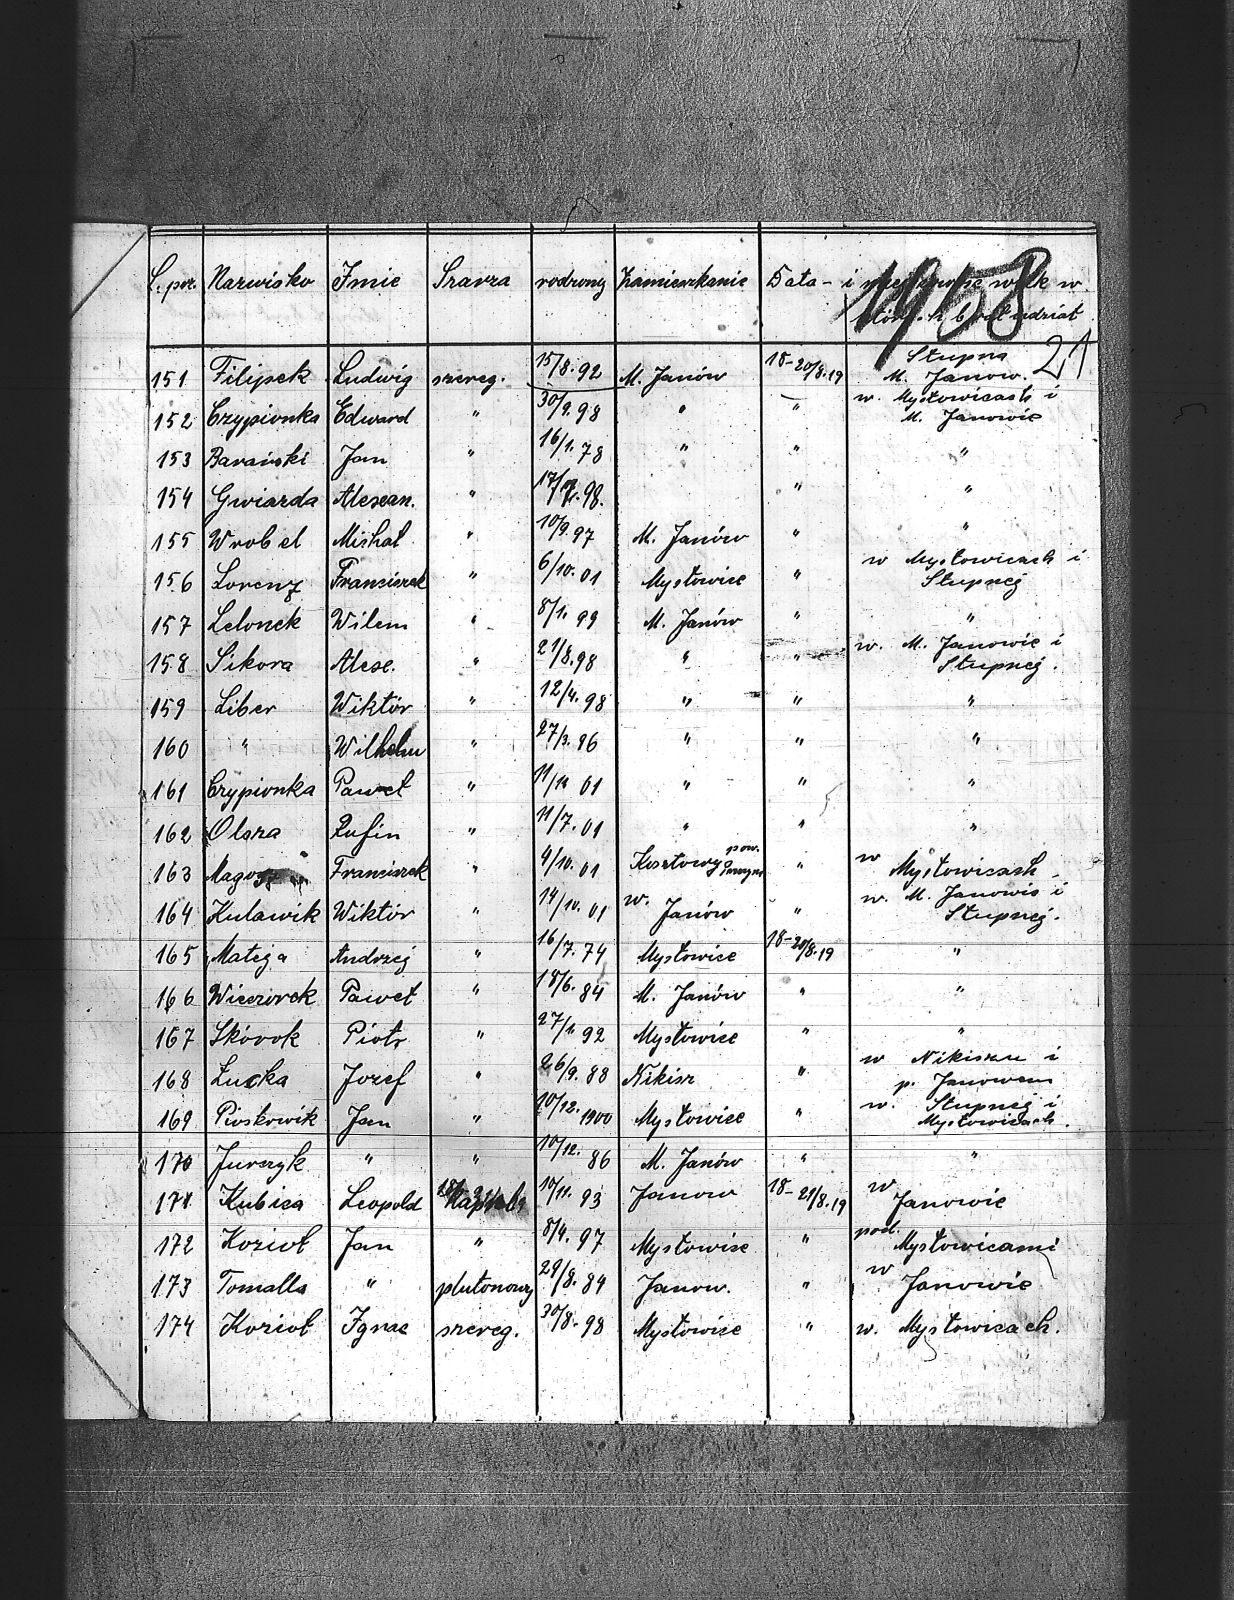 L. porz. Nazwisko Imie Szarża rodzony Zamieszkanie Data - i miejscowość walk w
których brał udział
1958
21
151 Filipek Ludwig szereg. 15/8. 92 M. Janów 18-20/8.19 Słupna
M. Janow.
152 Czypionka Edward " 30/9. 98 " " w. Mysłowicach i
M. Janowie
153 Barański Jan " 16/1. 78 " " "
154 Gwiazda Alexan. " 17/ 98. " "
155 Wrobel Michał " 10/9. 97 M. Janów " "
156 Lorenz Franciszek " 6/10. 01 Mysłowice " w Mysłowicach i
Słupnej
157 Lelonek Wilem " 8/1. 99 M. Janów " "
158 Sikora Alexe. " 21/8. 98 " " w. M. Janowie i
Słupnej.
159 Liber Wiktór " 12/4. 98 " " "
160 " Wilhelm " 27/3. 96 " " "
161 Czypionka Paweł " 11/11 01 " " "
162 Olsza Rufin " 11/7. 01 " " "
163 Franciszek " 4/10. 01 Kosztowy pow. " w Mysłowicach
164 Kulawik Wiktór " 14/10. 01 w. Janów " w. M. Janowie i
Słupnej.
165 Mateja Andrzej " 16/7. 74 Mysłowice 18-20/8.19 "
166 Wieczorek Paweł " 18/6. 84 M. Janów " "
167 Skórok Piotr " 27/1. 92 Mysłowice " "
168 Lucka Jozef " 26/9. 88 Nikisz " w Nikiszu i
p. Janowem
169 Pioskowik Jan " 10/12. 1900 Mysłowice " w. Słupnej i
Mysłowicach.
170 Jurczyk " " 10/12. 86 M. Janów " "
171 Kubica Leopold 10/11. 93 Janow 18-21/8.19 w
Janowie
172 Kozioł Jan " 8/4. 97 Mysłowice " pod.
Mysłowicami
173 Tomalla " plutonowy 29/8. 84 Janow. " w
Janowie
174 Kozioł Ignac szereg. 30/8. 98 Mysłowice " w. Mysłowicach.